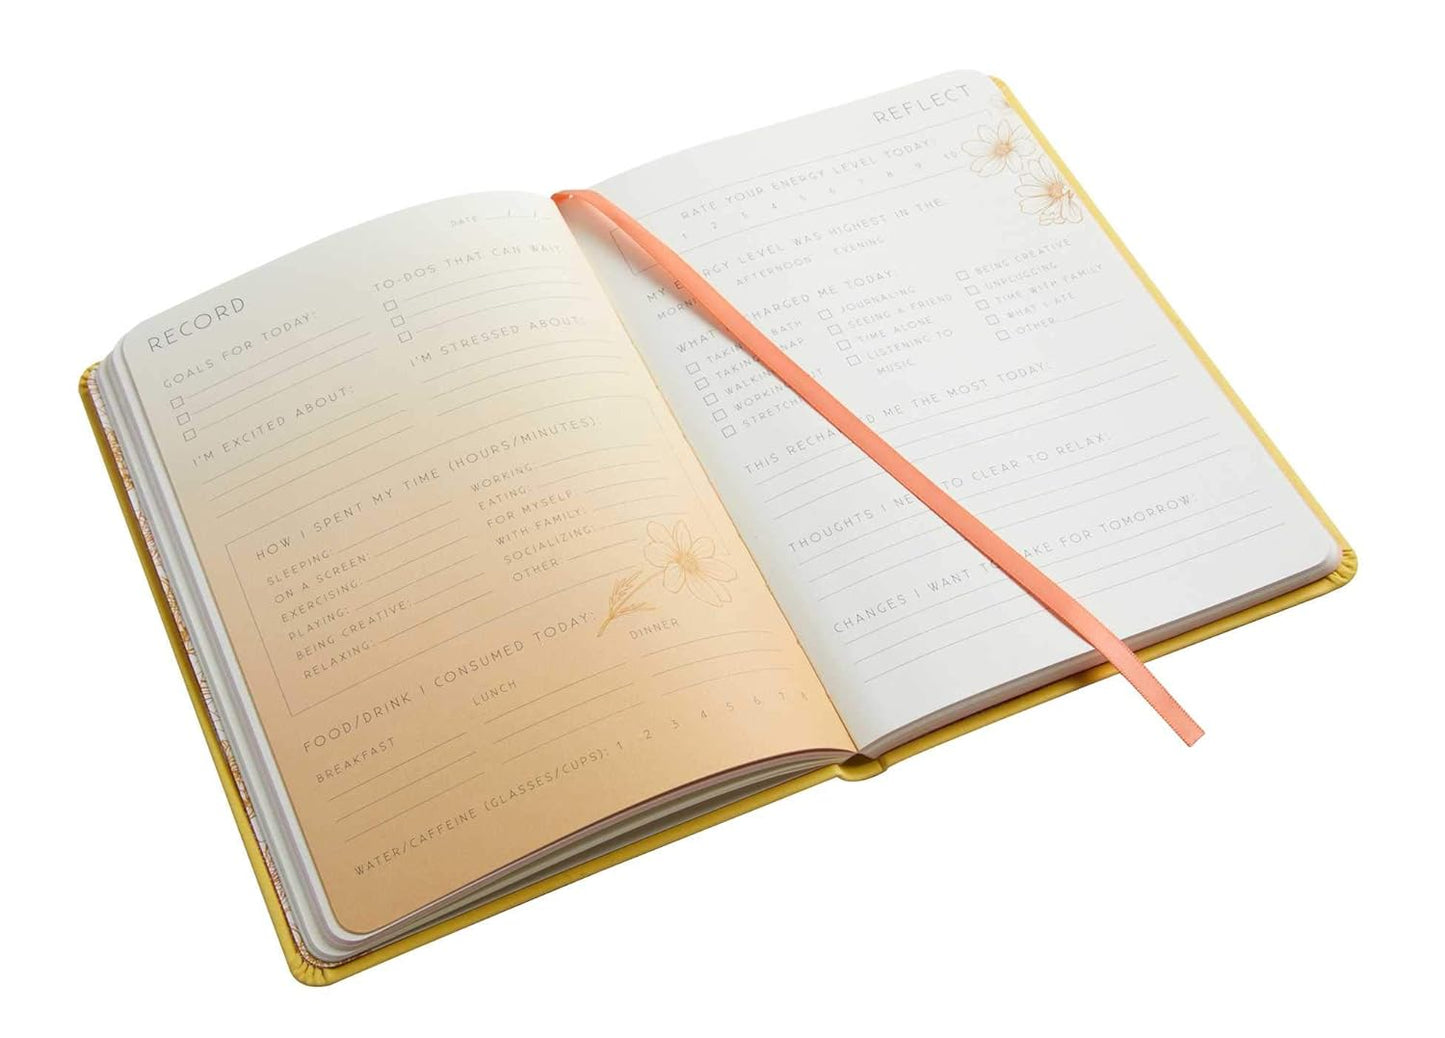 RECORD
DATE / /
GOALS FOR TODAY:
TO-DOS THAT CAN WAIT
I'M EXCITED ABOUT:
I'M STRESSED ABOUT:
HOW I SPENT MY TIME (HOURS/MINUTES):
SLEEPING:
ON A SCREEN:
EXERCISING:
PLAYING:
BEING CREATIVE:
RELAXING:
WORKING:
EATING:
FOR MYSELF:
WITH FAMILY:
SOCIALIZING:
OTHER:
FOOD/DRINK I CONSUMED TODAY:
BREAKFAST
LUNCH
DINNER
WATER/CAFFEINE (GLASSES/CUPS): 1 2 3 4 5 6 7 8
REFLECT
RATE YOUR ENERGY LEVEL TODAY:
1 2 3 4 5 6 7 8 9 10
MY ENERGY LEVEL WAS HIGHEST IN THE:
AFTERNOON EVENING
WHAT CHARGED ME TODAY:
BATH
NAP
STRETCH
JOURNALING
SEEING A FRIEND
TIME ALONE
LISTENING TO
MUSIC
BEING CREATIVE
UNPLUGGING
TIME WITH FAMILY
WHAT I ATE
OTHER
THIS ME THE MOST TODAY:
THOUGHTS I TO CLEAR TO RELAX:
CHANGES I WANT FOR TOMORROW: